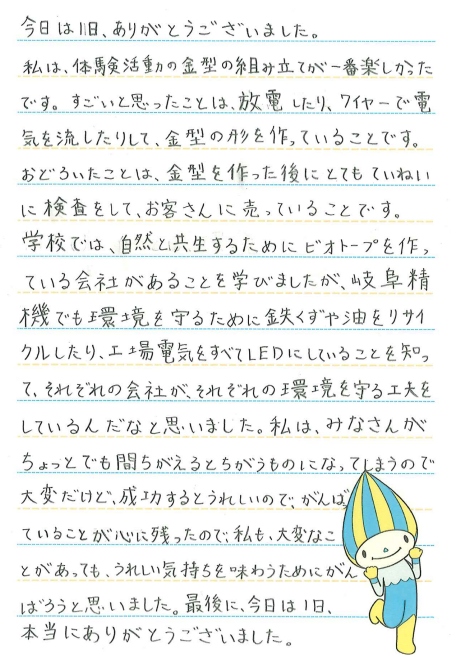 今日は1日、ありがとうございました。
私は、体験活動の金型の組み立てが一番楽しかった
です。すごいと思ったことは、放電したり、ワイヤーで電
気を流したりして、金型の形を作っていることです。
おどろいたことは、金型を作った後にとてもていねい
に検査をして、お客さんに売っていることです。
学校では、自然と共生するためにビオトープを作っ
ている会社があることを学びましたが、岐阜精
機でも環境を守るために鉄くずや油をリサイ
クルしたり、工場電気をすべてLEDにしていることを知っ
て、それぞれの会社が、それぞれの環境を守る工夫を
しているんだなと思いました。私は、みなさんが
ちょっとでも間ちがえるとちがうものになってしまうので
大変だけど、成功するとうれしいので、がんば
ていることが心に残ったので、私も、大変なこ
とがあっても、うれしい気持ちを味わうためにがん
ばろうと思いました。最後に、今日は1日、
本当にありがとうございました。